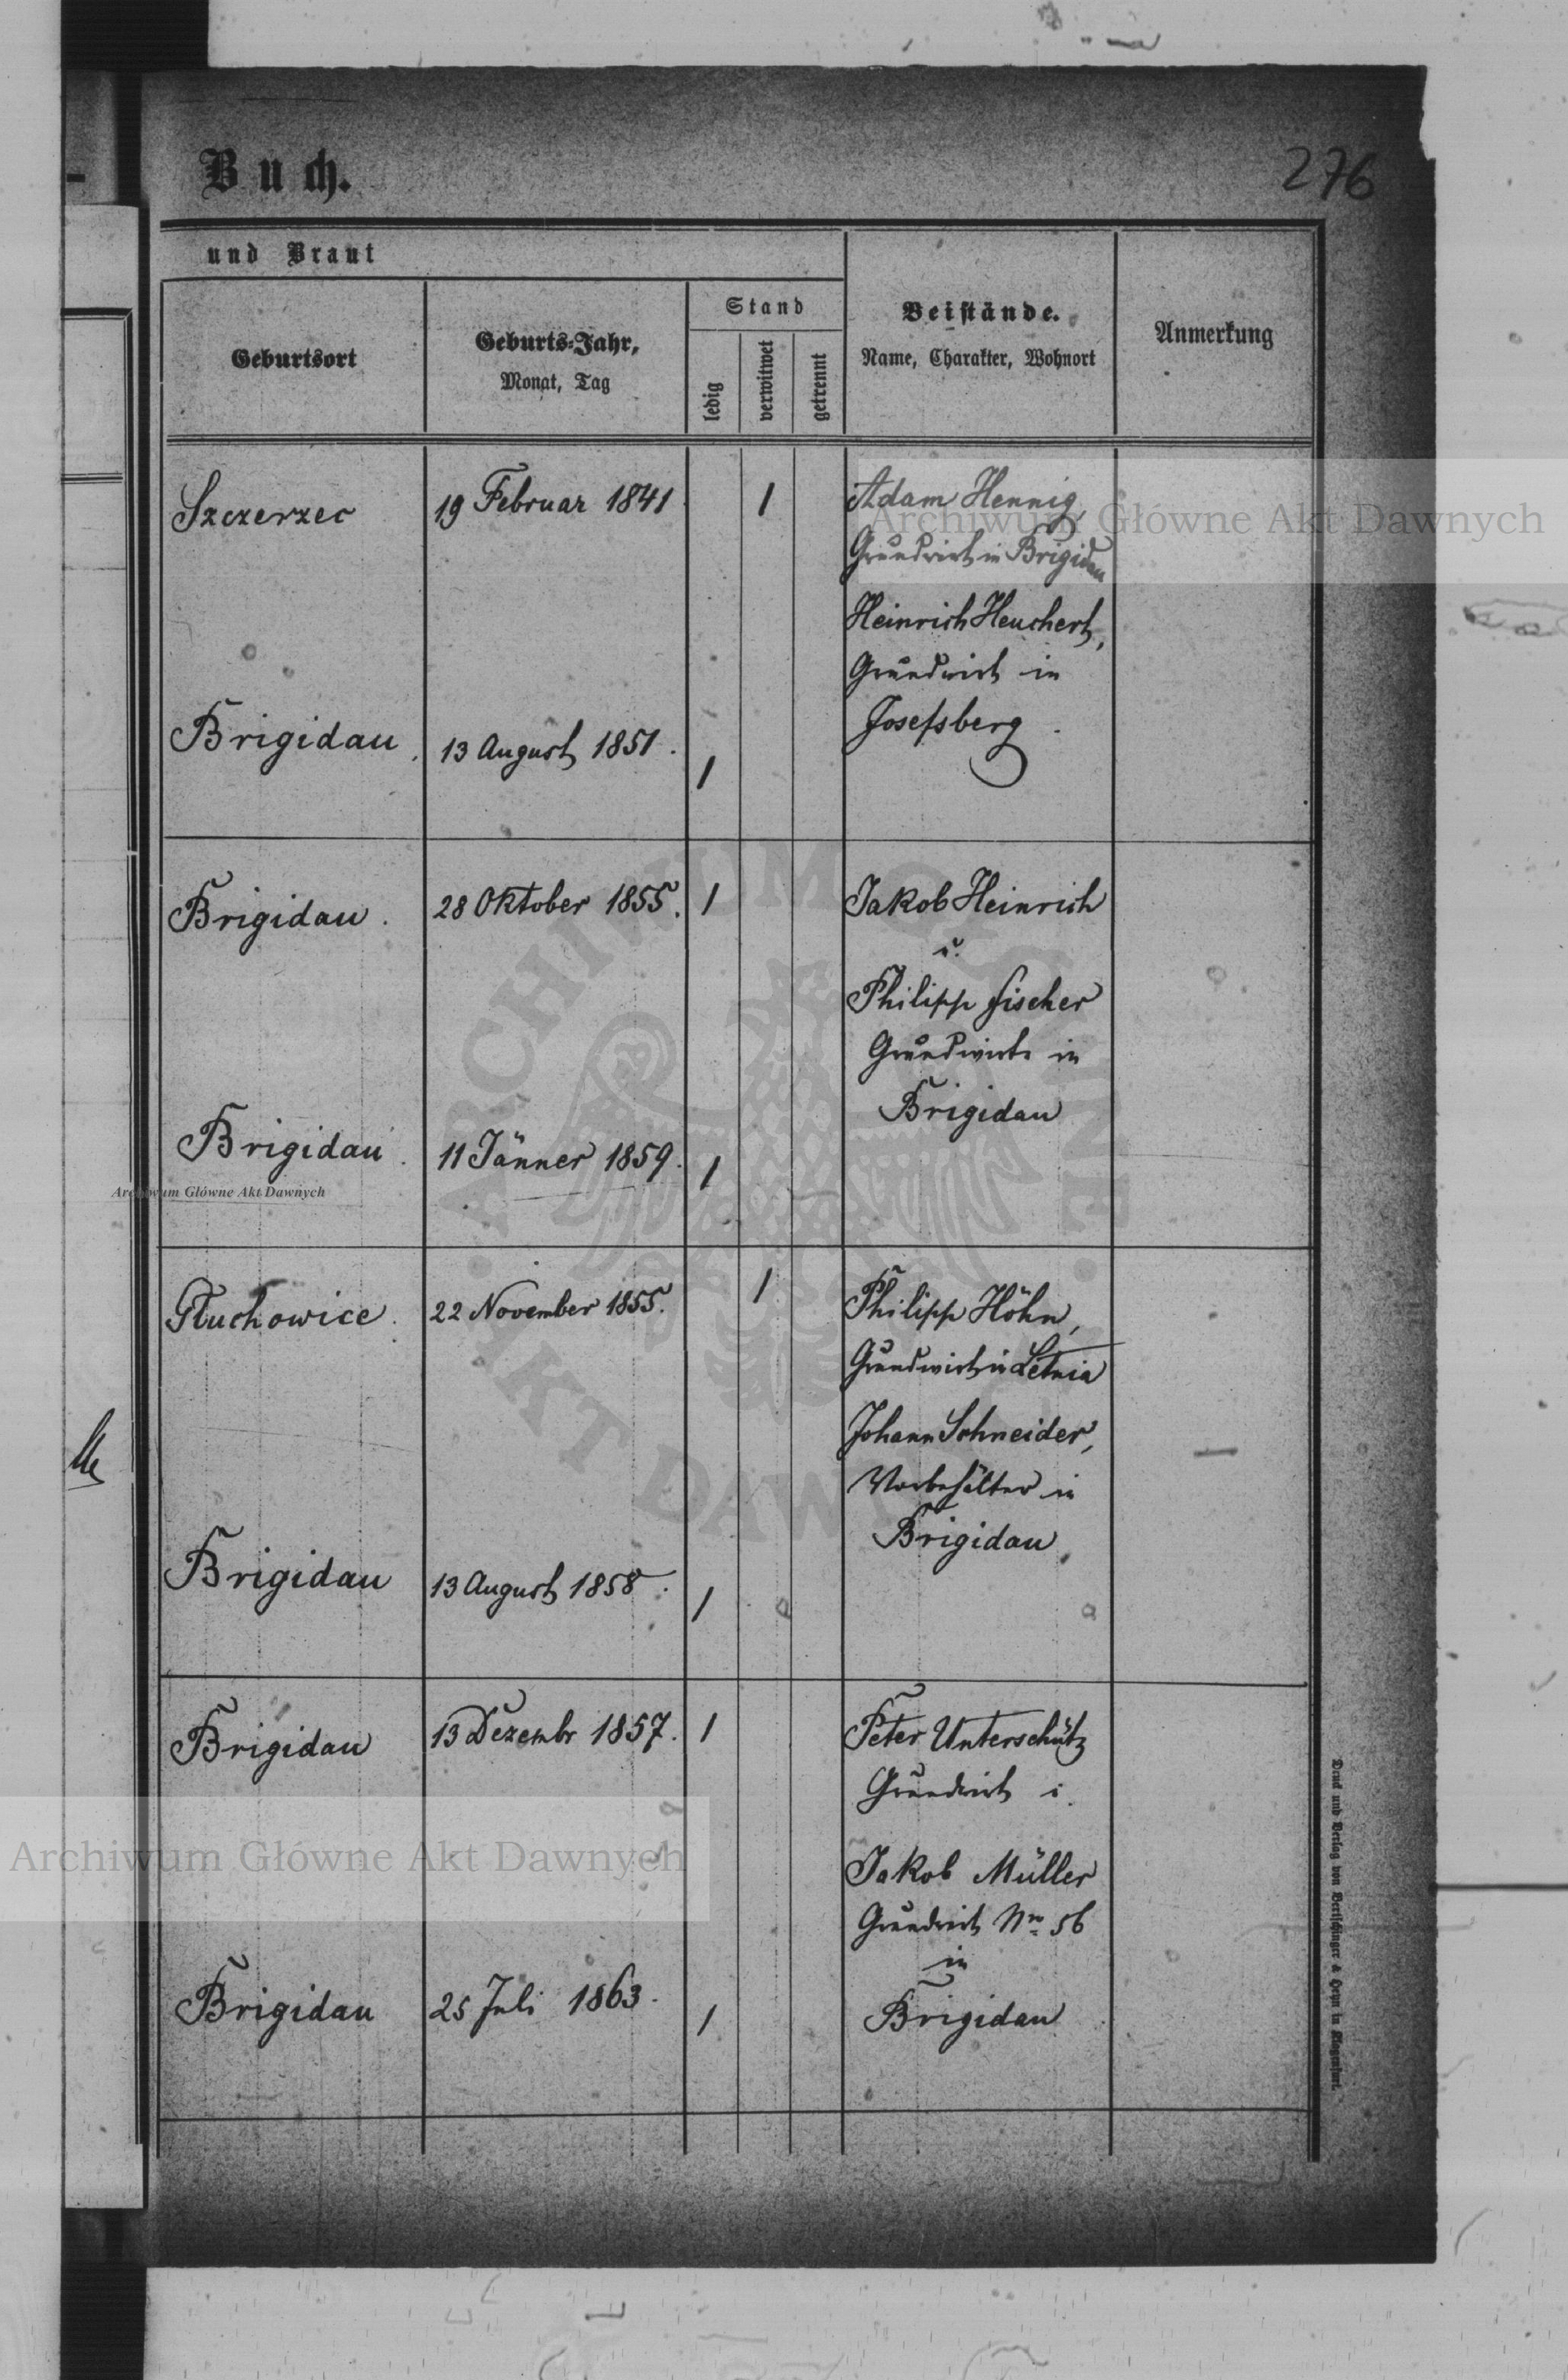 Buch.
276
und Braut
Geburtsort
Geburts-Jahr,
Monat, Tag
Stand
ledig
verwitwet
getrennt
Beistände.
Name, Charakter, Wohnort
Anmerkung
Szczerzec
19 Februar 1841
1
Adam Hennig,
Grundwirt in Brigidau
Heinrich Heuchert,
Grundwirt in
Josefsberg
Brigidau.
13 August 1851.
1
Brigidau.
28 Oktober 1855.
1
Jakob Heinrich
u.
Philipp Fischer
Grundwirte in
Brigidau
Brigidau.
11 Jänner 1859.
1
Głuchowice.
22 November 1855.
1
Philipp Höhn,
Grundwirt in Letnia
Johann Schneider,
Vorbehälter in
Brigidau
Brigidau
13 August 1858.
1
Brigidau
13 Dezembr 1857.
1
Peter Unterschütz
Grundwirt
Jakob Müller
Grundwirt Nro 56
in
Brigidau
Brigidau
25 Juli 1863.
1
Druck und Verlag von Bertschinger & Heyn in Klagenfurt.
Archiwum Główne Akt Dawnych
Archiwum Główne Akt Dawnych
Archiwum Główne Akt Dawnych